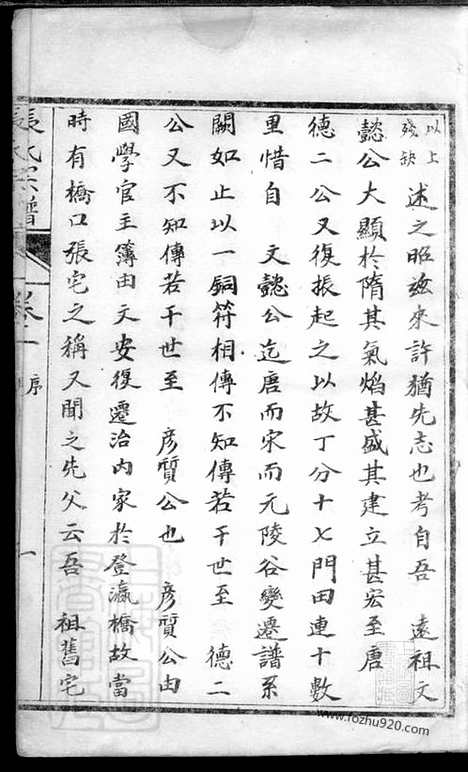 以上
残缺
述之昭兹來許猶先志也考自吾　遠祖文
懿公大顯於隋其氣焰甚盛其建立甚宏至唐
德二公又復振起之以故丁分十七門田連十數
里惜自　文懿公迄唐而宋而元陵谷變遷譜系
闕如止以一銅符相傳不知傳若干世至　德二
公又不知傳若干世至　彦質公也　彦質公由
國學官主簿由文安復遷治内家於登瀛橋故當
時有橋口張宅之稱又聞之先父云吾　祖舊宅
張氏宗譜
卷一
序
一
www.fozhu920.com